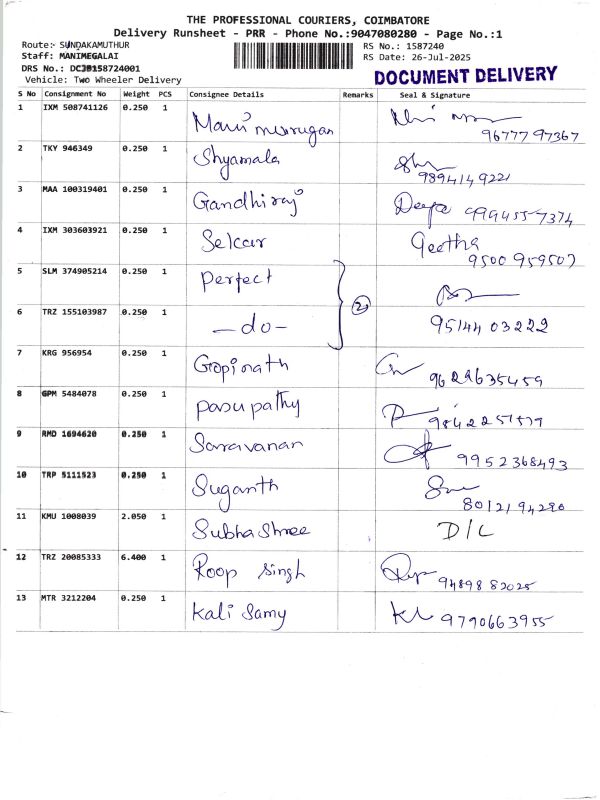 THE PROFESSIONAL COURIERS, COIMBATORE
Delivery Runsheet - PRR - Phone No.:9047080280 - Page No.:1
Route:- SUNDAKAMUTHUR RS No.: 1587240
Staff: MANIMEGALAI RS Date: 26-Jul-2025
DRS No.: 158724001
Vehicle: Two Wheeler Delivery DOCUMENT DELIVERY
S No Consignment No Weight PCS Consignee Details Remarks Seal & Signature
1 IXM 508741126 0.250 1 Manimurugan 96777 97367
2 TKY 946349 0.250 1 Shyamala 9894149221
3 MAA 100319401 0.250 1 Gandhiraj Deepa 9994557374
4 IXM 303603921 0.250 1 Selcar Geetha 9500 959507
5 SLM 374905214 0.250 1 Perfect
6 TRZ 155103987 0.250 1 -do- 2 95144 03222
7 KRG 956954 0.250 1 Gopinath 9629635459
8 GPM 5484078 0.250 1 pasupathy
9 RMD 1694620 0.250 1 Saravanan 9952368493
10 TRP 5111523 0.250 1 Suganth
11 KMU 1008039 2.050 1 Subhashree D/L
12 TRZ 20085333 6.400 1 Roop Singh 94898 82025
13 MTR 3212204 0.250 1 Kali Samy 9790663955